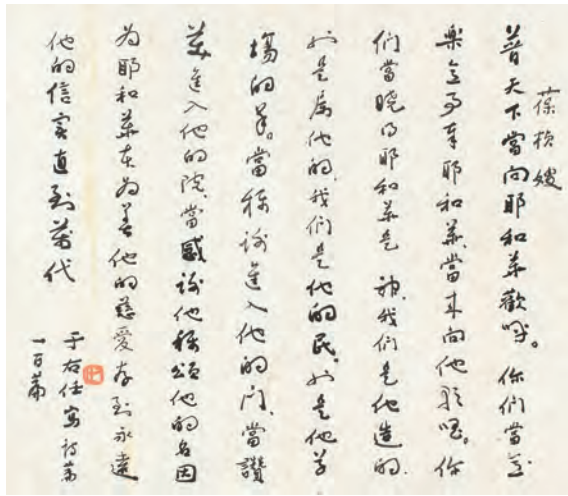 葆楨嫂
普天下當向耶和華歡呼。你們當
樂意事奉耶和華,當來向他歌唱。你
們當曉得耶和華是 神,我們是他造的,
也是屬他的,我們是他的民,也是他草
場的羊。當稱謝進入他的門,當讚
美進入他的院,當感謝他稱頌他的名因
為耶和華本為善他的慈愛存到永遠
他的信實直到萬代
于右任寫詩篇
一百篇